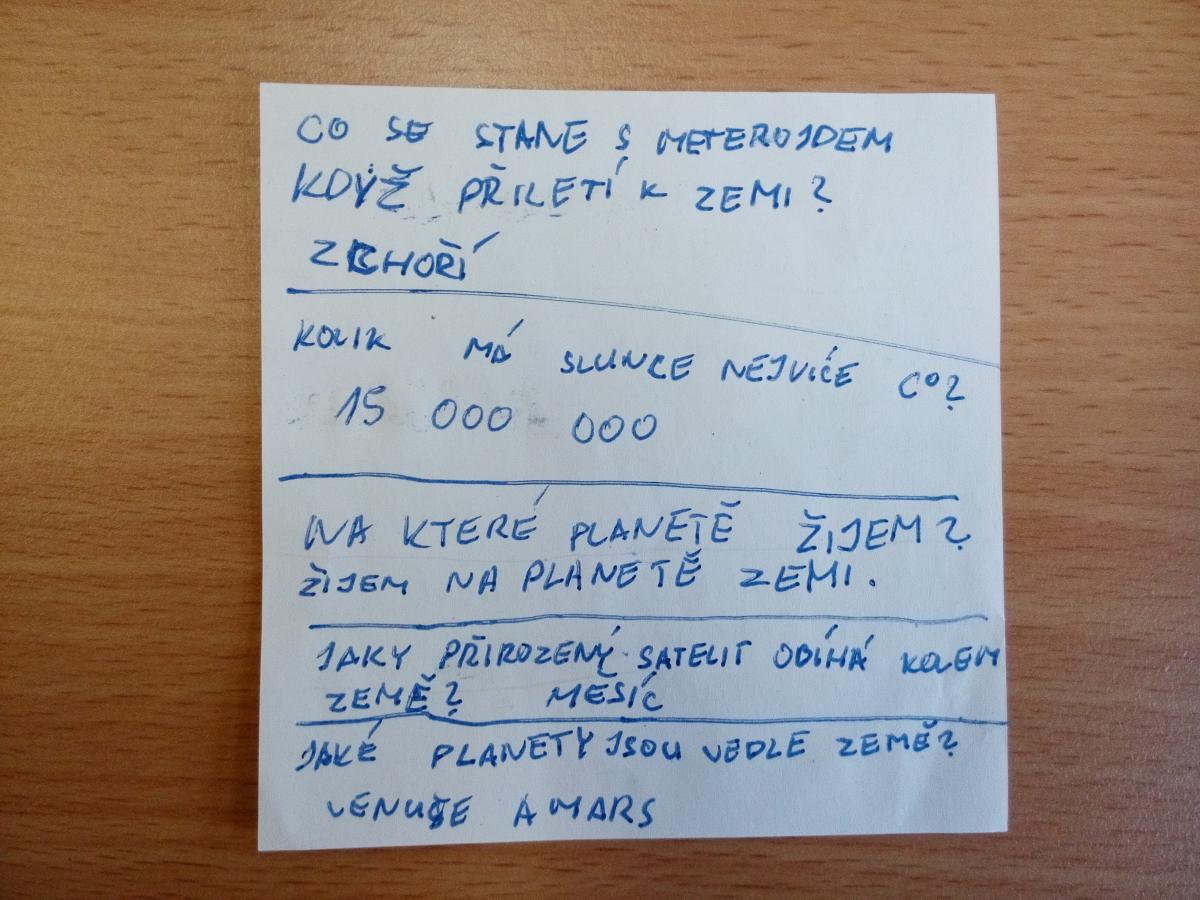 CO SE STANE S METEROJDEM
KDYŽ PŘILETÍ K ZEMI?
ZCHOŘÍ
KOLIK MÁ SLUNCE NEJVÍCE C°?
15 000 000
NA KTERÉ PLANETĚ ŽIJEM?
ŽIJEM NA PLANETĚ ZEMI.
JAKY PŘIROZENÝ SATELIT OBÍHÁ KOLEM
ZEMĚ? MĚSÍC
JAKÉ PLANETY JSOU VEDLE ZEMĚ?
VENUŠE A MARS